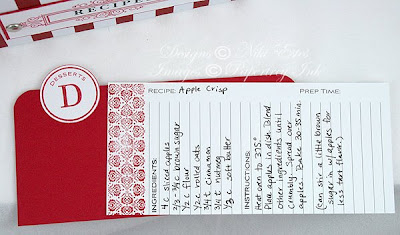 RECIPE
Designs © Niki Estes
Images © Papertrey Ink
DESSERTS
D
RECIPE: Apple Crisp
PREP TIME:
INGREDIENTS:
4 c sliced apples
2/3 - 3/4 c brown sugar
1/2 c flour
1/2 c rolled oats
3/4 t cinnamon
3/4 t nutmeg
1/3 c soft butter
INSTRUCTIONS:
Heat oven to 375°
Place apples in dish. Blend
other ingredients until
crumbly. Spread over
apples. Bake 30-35 min.
(can stir a little brown
sugar in w/ apples for
less tart flavor.)